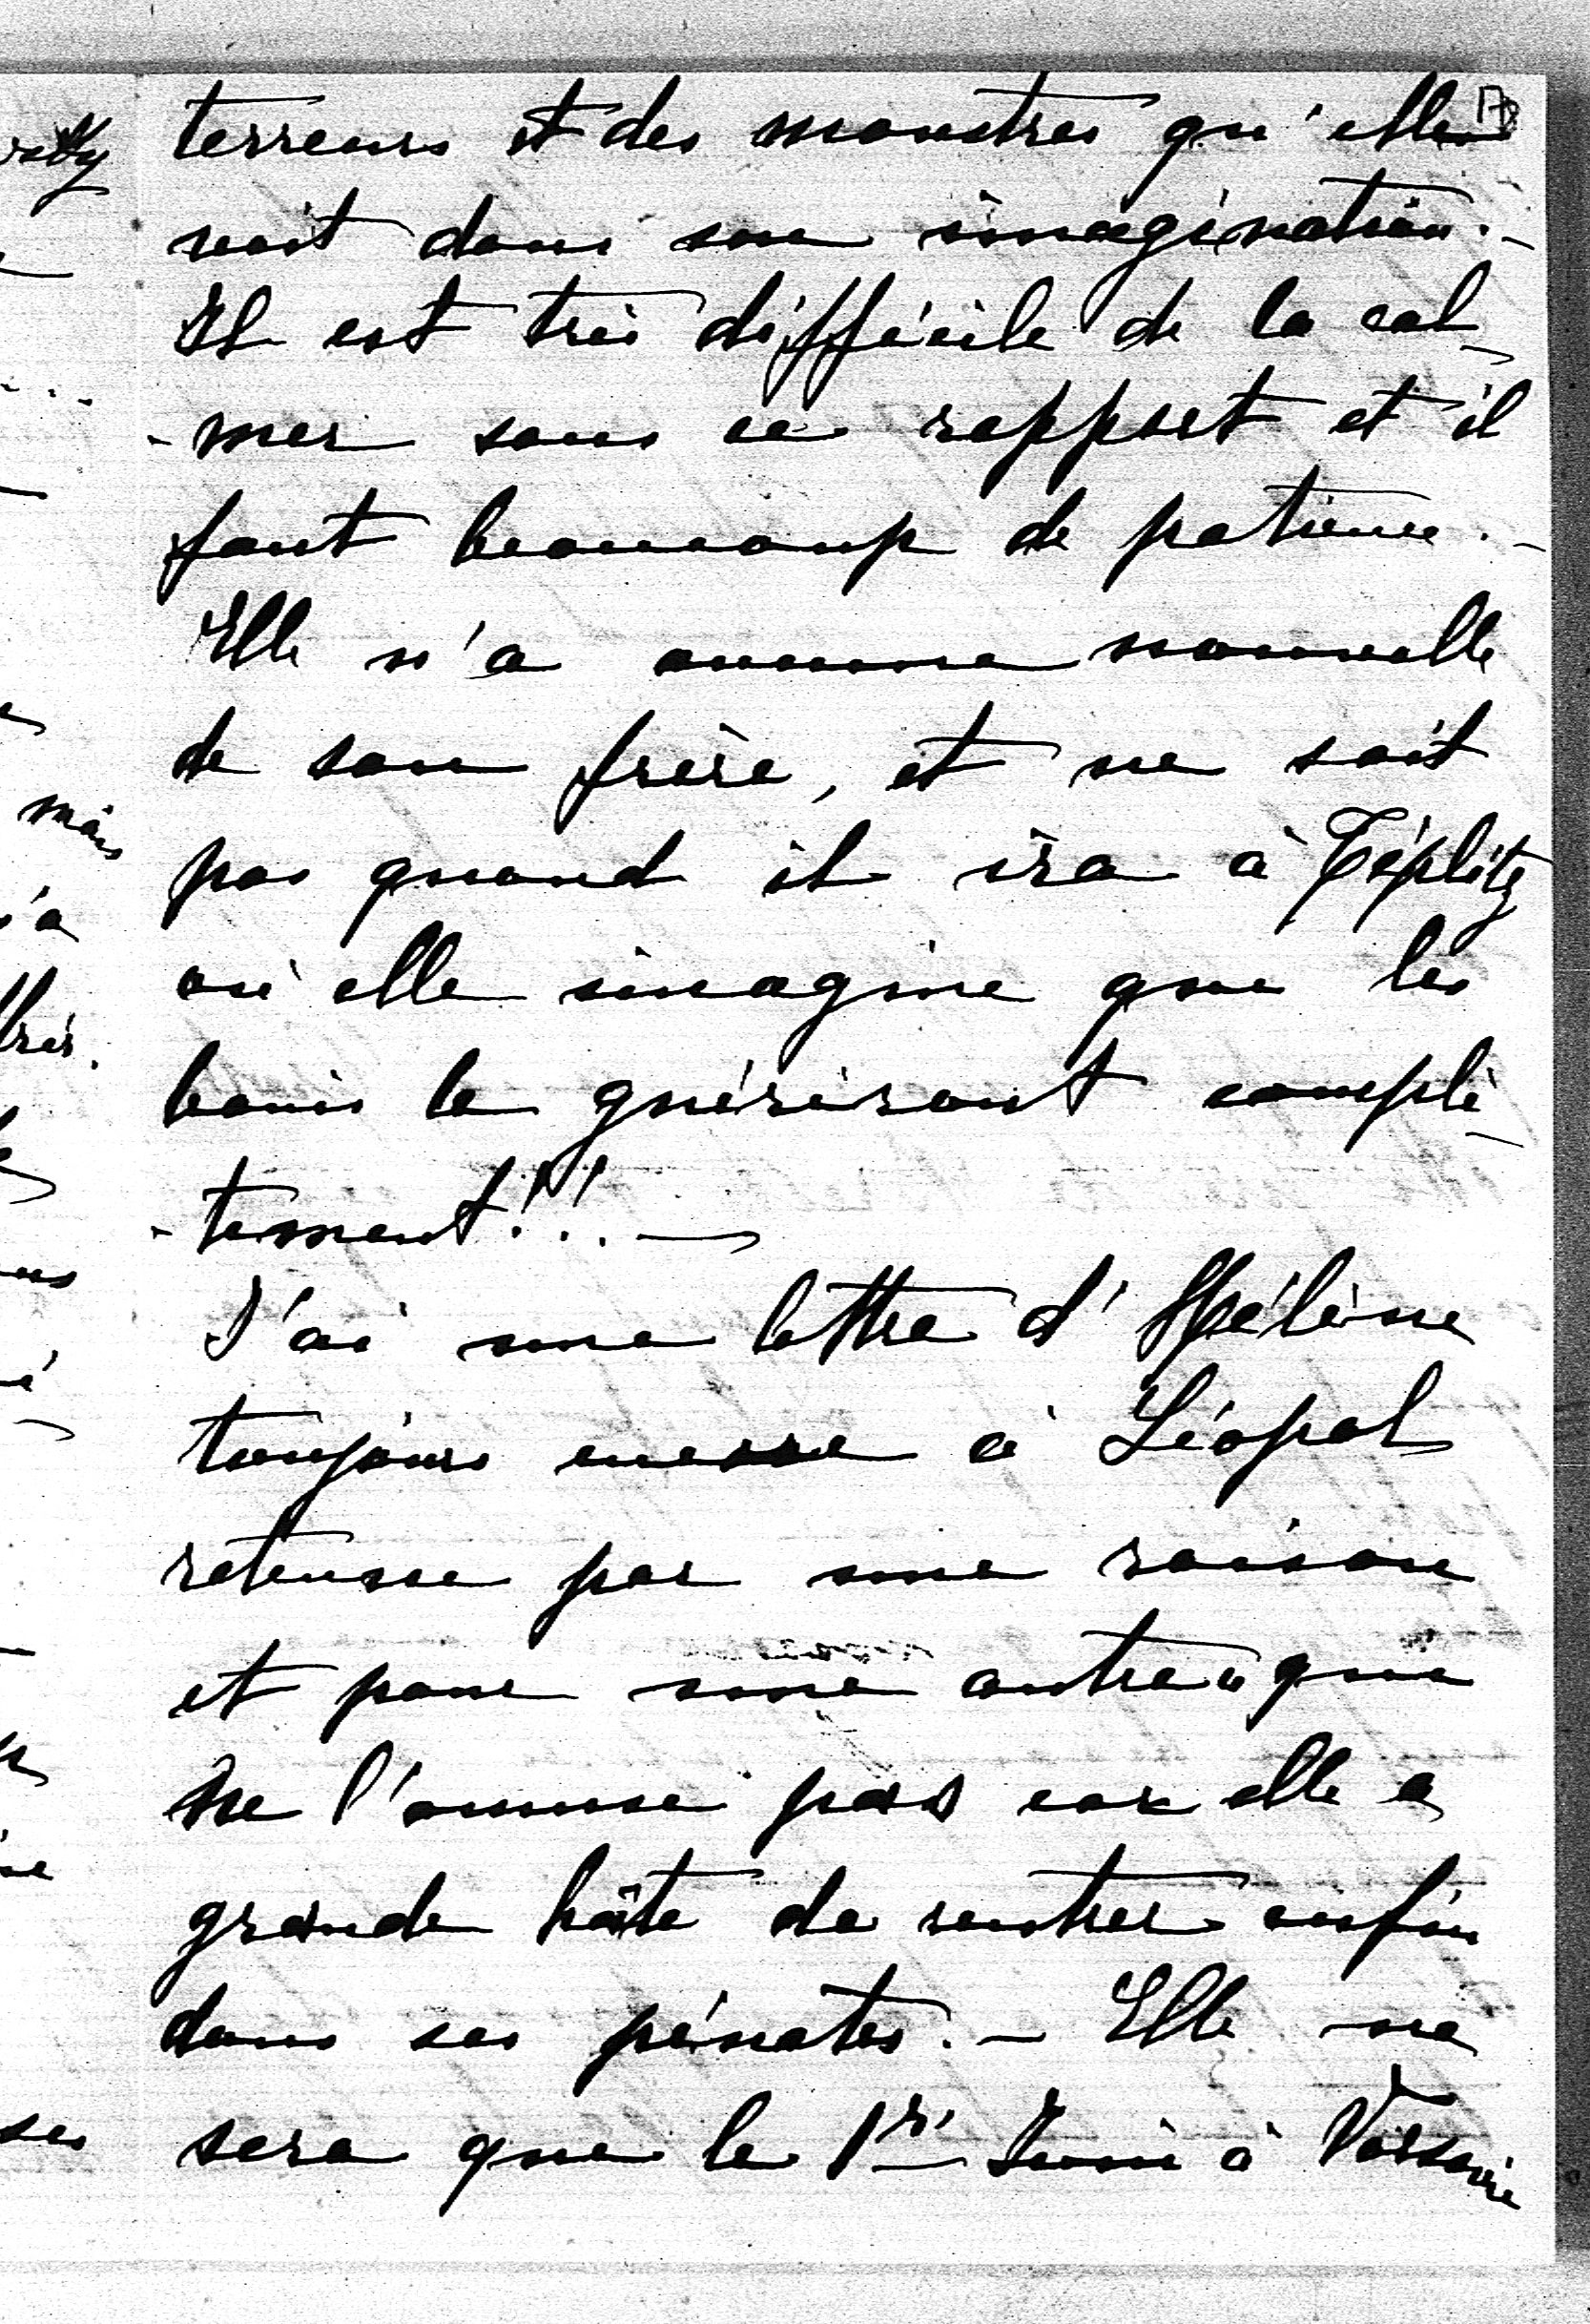 terreurs et des monstres qu'elle
voit dans son imagination. -
Il est très difficile de la cal-
-mer sous ce rapport et il
faut beaucoup de patience. -
Elle n'a aucune nouvelle
de son frère, et ne sait
pas quand il ira à Téplitz
où elle imagine que les
bains le guériront complè-
-tement!!! —
J'ai une lettre d'Hélène
toujours encore à Léopol
retenue par une raison
et pour une autre que
ne l'amuse pas car elle a
grande hâte de rentrer enfin
dans ses pénates. - Elle ne
sera que le 1r Juin à Varsovie